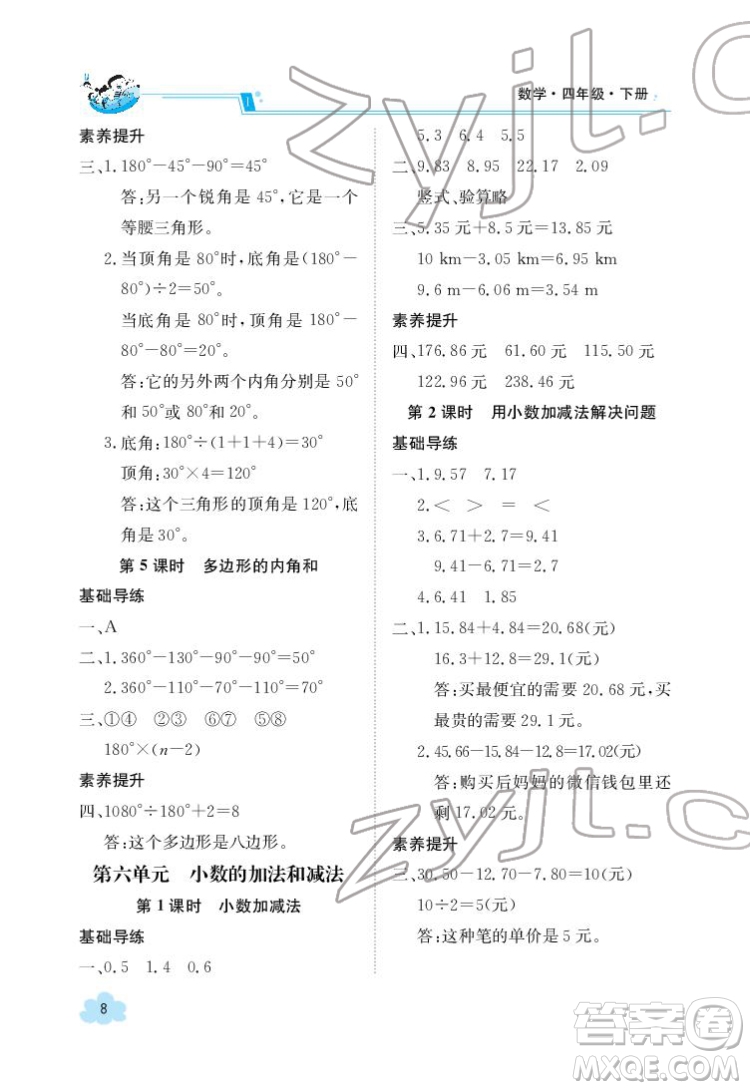 数学·四年级·下册
素养提升
三、1. 180°－45°－90°＝45°
答:另一个锐角是 45°,它是一个
等腰三角形。
2. 当顶角是 80°时,底角是(180°－
80°)÷2＝50°。
当底角是 80°时,顶角是 180°－
80°－80°＝20°。
答:它的另外两个内角分别是 50°
和 50°或 80°和 20°。
3. 底角:180°÷(1＋1＋4)＝30°
顶角:30°×4＝120°
答:这个三角形的顶角是 120°,底
角是 30°。
第 5 课时　多边形的内角和
基础导练
一、A
二、1. 360°－130°－90°－90°＝50°
2. 360°－70°－90°－90°＝110°
三、①④　②③　⑥⑦　⑤⑧
180°×(n－2)
素养提升
四、1080°÷180°＋2＝8
答:这个多边形是八边形。
第六单元　小数的加法和减法
第 1 课时　小数加减法
基础导练
一、0.5　1.4　0.6
8
5.3　6.4　5.5
二、9.83　8.95　22.17　2.09
竖式、验算略
三、5.35 元＋8.5 元＝13.85 元
10 km－3.05 km＝6.95 km
9.6 m－6.06 m＝3.54 m
素养提升
四、176.86 元　61.60 元　115.50 元
122.96 元　238.46 元
第 2 课时　用小数加减法解决问题
基础导练
一、1. 9.57　7.17
2. ＜　＞　＝　＜
3. 6.71＋2.7＝9.41
9.41－6.71＝2.7
4. 6.81　6.9
二、1. 15.84＋4.84＝20.68(元)
16.3＋12.8＝29.1(元)
答:买最便宜的需要 20.68 元,买
最贵的需要 29.1 元。
2. 45.66－15.84－12.8＝17.02(元)
答:购买后妈妈的微信钱包里还
剩 17.02 元。
素养提升
三、30.50－12－8.50＝10(元)
10÷2＝5(元)
答:这种笔的单价是 5 元。
zyjl.cn
zyjl.c
答案圈
MXQE.COM